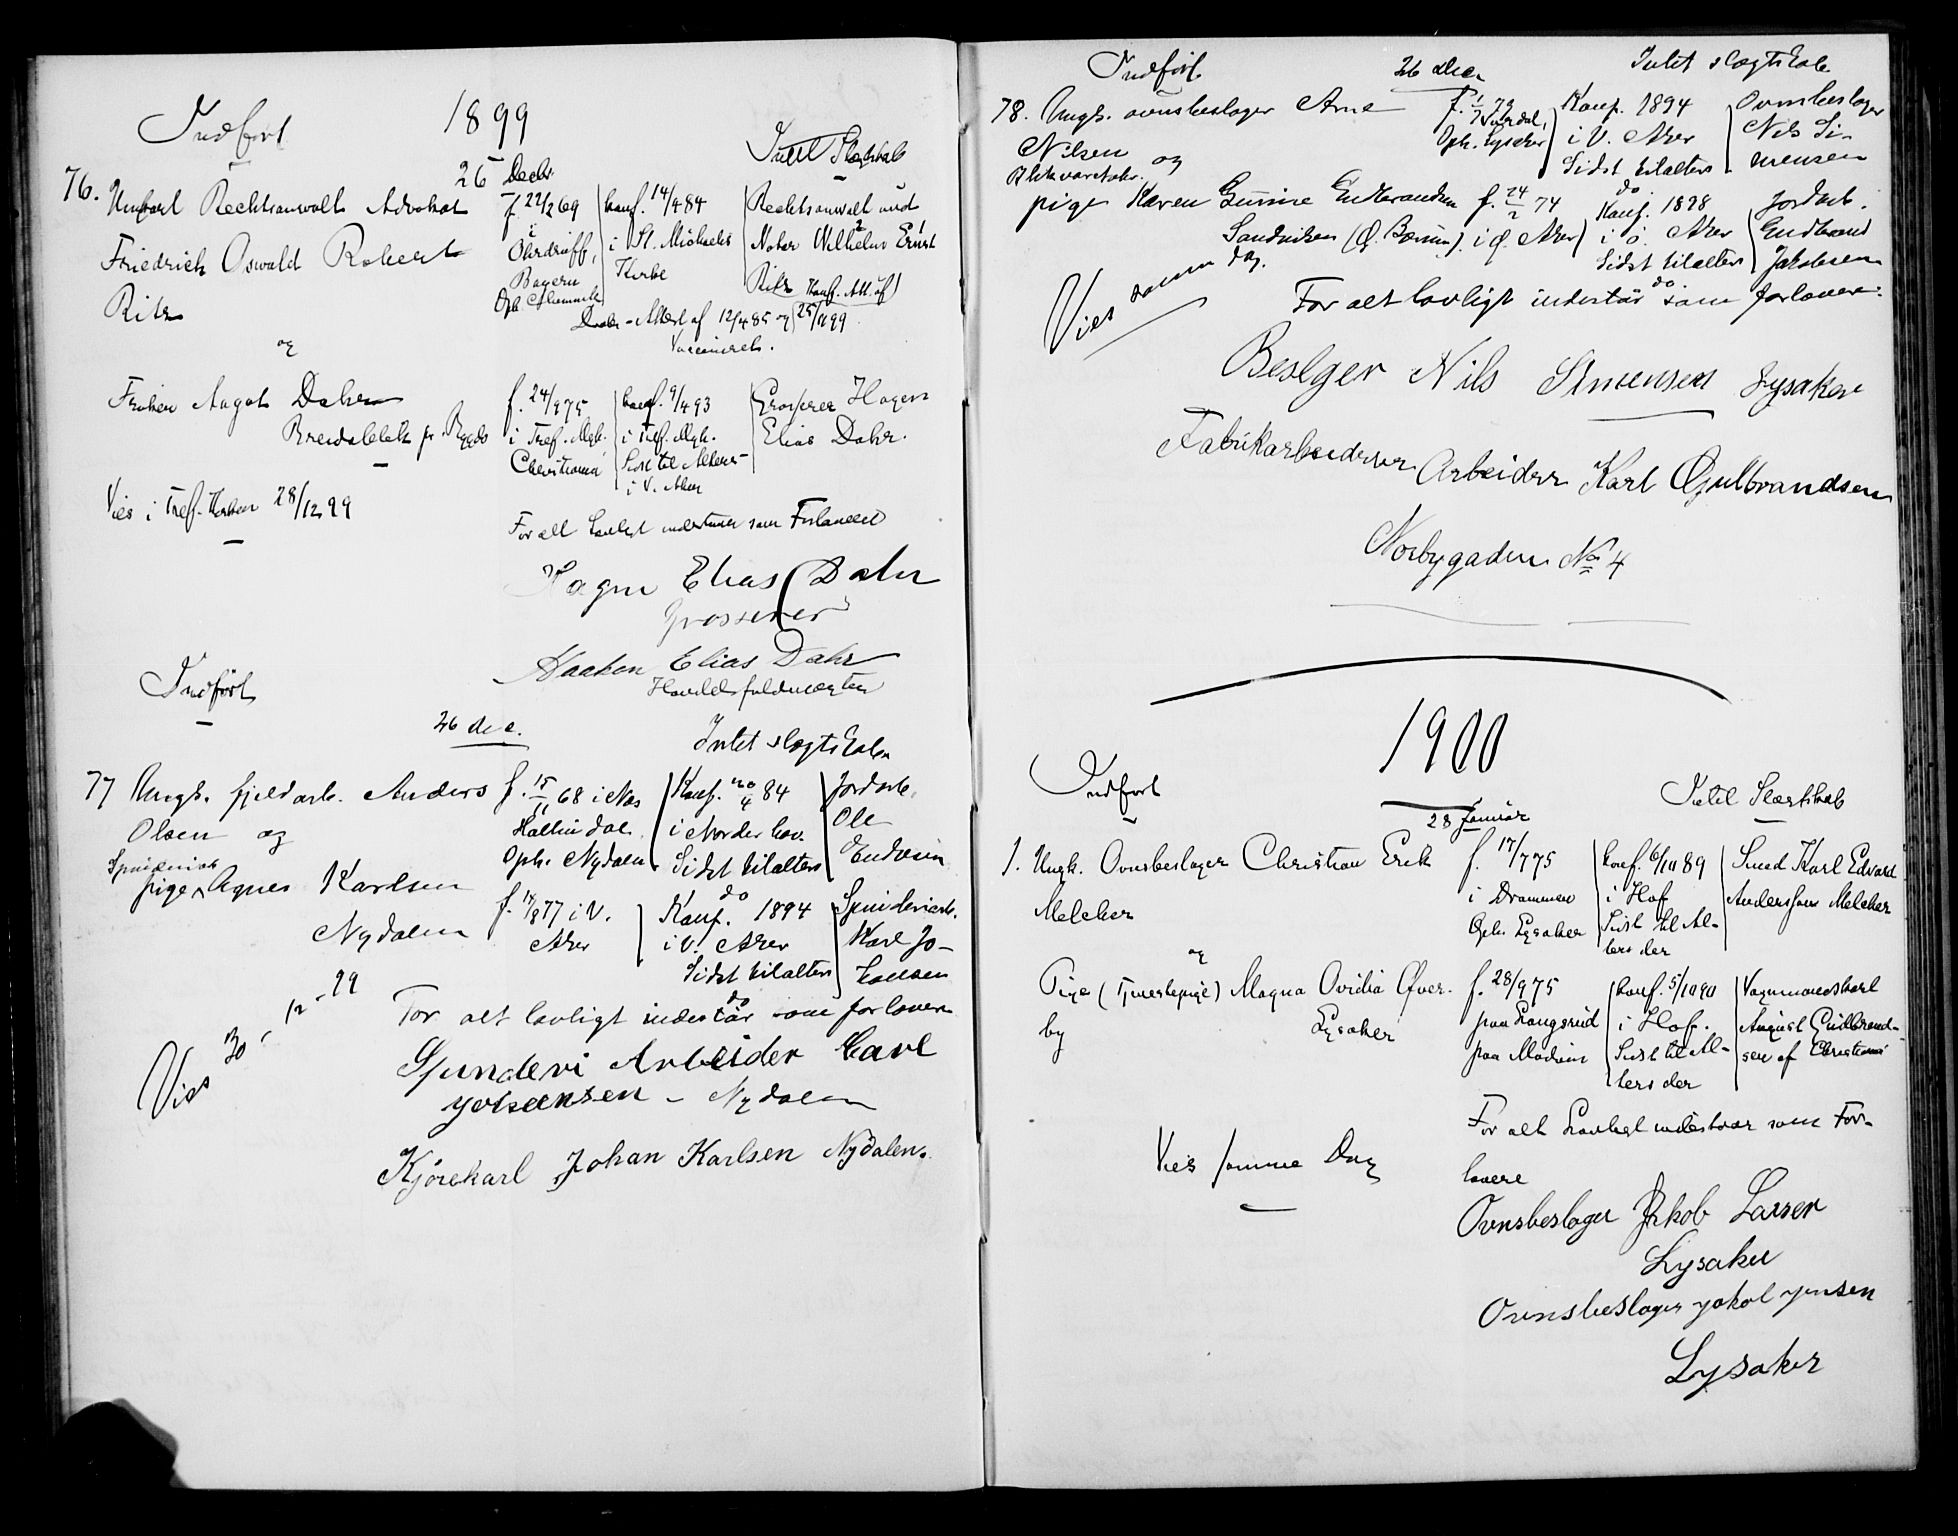 Indført
1899
Intet Slægtskab
26 Decbr
76. Ungkarl Rechtsanwalt Advokat
Friedrich Oswald Robert
Ritz
f. 22/2 69
i
Ohrdruff,
Bayern
Oph.
konf. 14/4 84
i St. Michaelis
Kirke
Rechtsanwalt und
Notar Wilhelm Ernst
Ritz
Konf. Att. af
Daabs-Attest af 12/4 85 og 25/11 99
Vaccineret.
og
Frøken Aagot Dahr
pr. Bygdø
f. 24/9 75
i Tref. Mgh.
Christiania
konf. 9/4 93
i Tref. Mgh.
Sidst til Alters
i V. Aker
Grosserer Hagen
Elias Dahr.
Viet i Tref. Kirken 28/12 99
For alt Lovligt indestaaer som Forlovere
Hagen Elias Dahr
Grosserer
Haakon Elias Dahr
Handelsfuldmægtig
Indført
26 dec.
Intet slægtskab
77 Ungk. fjeldarb. Anders
Olsen og
f. 15/11 68 i Nes
Hallindal
Oph. Nydalen
Konf. 20/4 84
i Norderhov.
Sidst tilalters
do
Jordarb.
Ole
Endresen
Spinderiarb.
pige Agnes Karlsen
Nydalen
f. 17/8 77 i V.
Aker
Konf. 1894
i V. Aker
Sidst tilalters
do
Spinderiarb.
Karl Jo-
hansen
Viet 30/12 - 99
For alt lovligt indestår som forlovere
Spinderi Arbeider Carl
Johansen - Nydalen
Kjørekarl Johan Karlsen Nydalen.
Indført
26 dec.
Intet slægtskab
78. Ungk. ovnsbeslager Arne
Nilsen og
f. 1/7 79
Oph. Lysaker
Konf. 1894
i V. Aker
Sidst tilalters
do
Ovnsbeslager
Nils Si-
mensen
pige Karen Gunine Gudbrandsen f. 24/2 74
Sandviken (Ø. Bærum). i Ø. Aker
Konf. 1898
i ø. Aker
Sidst tilalters
do
Jordarb.
Gudbrand
Jakobsen
Viet samme dag.
For alt lovligt indestår som forlovere:
Beslger Nils Simensen Lysaker
Fabrikarbeider Arbeider Karl Gulbrandsen
Norbygaden No 4
1900
Indført
28 Januar
Intet Slægtskab
1. Ungk. Ovnsbeslager Christian Erik
Melcher
f. 17/7 75
i Drammen
Oph. Lysaker
konf. 6/10 89
i Hof
Sidst til Al-
ters der
Smed Karl Edvard
Andersson Melcher
og
Pige (Tjenestepige) Magna Ovidia Øver-
by
Lysaker
f. 28/9 75
paa Langerud
paa Modum
konf. 5/10 90
i Hof.
Sidst til Al-
ters der
Vognmandskarl
August Gudbrand-
sen af Christiania
Viet samme Dag
For alt Lovligt indestaar som For-
lovere
Ovnsbeslager Jakob Larsen
Lysaker
Ovnsbeslager Jakob Jensen
Lysaker